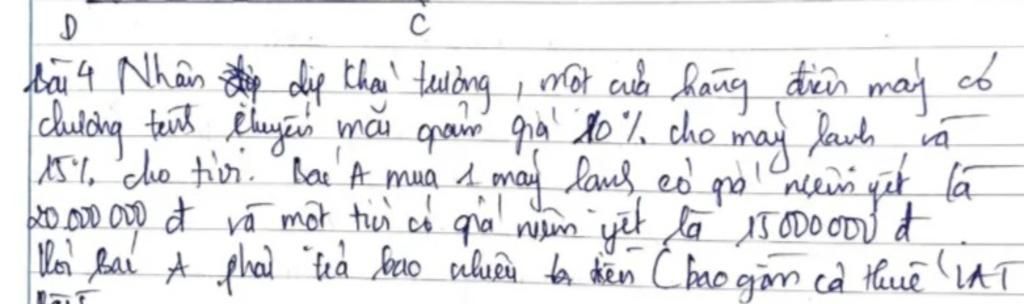 D C
Bài 4 Nhân dịp khai trường, một cửa hàng điện máy có
chương trình khuyến mãi giảm giá 10% cho máy lạnh và
15% cho tivi. Bác A mua 1 máy lạnh có giá niêm yết là
20.000.000 đ và một tivi có giá niêm yết là 15000000 đ.
Hỏi Bác A phải trả bao nhiêu tiền (bao gồm cả thuế VAT